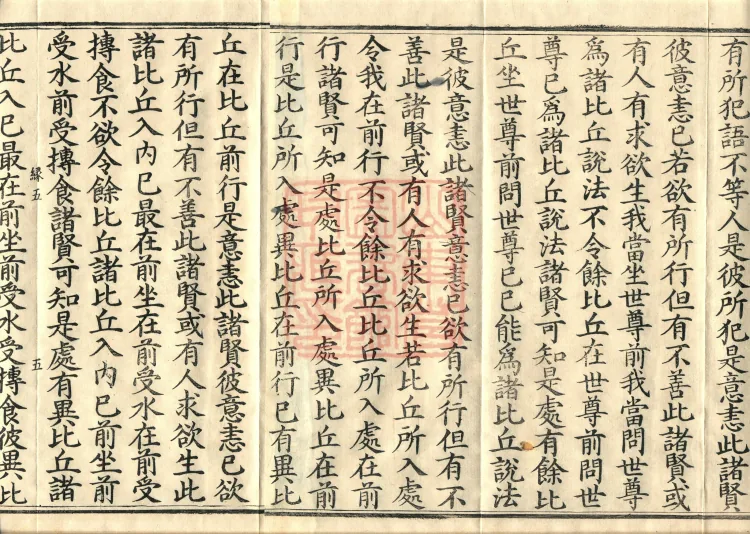 有所犯語不等人是彼所犯是意恚此諸賢
彼意恚已若欲有所行但有不善此諸賢或
有人有求欲生我當坐世尊前我當問世尊
為諸比丘說法不令餘比丘在世尊前問世
尊已為諸比丘說法諸賢可知是處有餘比
丘坐世尊前問世尊已已能為諸比丘說法
是彼意恚此諸賢意恚已欲有所行但有不
善此諸賢或有人有求欲生若比丘所入處
令我在前行不令餘比丘比丘所入處在前
行諸賢可知是處比丘所入處異比丘在前
行是比丘所入處異比丘在前行已有異比
丘在比丘前行是意恚此諸賢彼意恚已欲
有所行但有不善此諸賢或有人求欲生此
諸比丘入內已最在前坐在前受水在前受
摶食不欲令餘比丘諸比丘入內已前坐前
受水前受摶食諸賢可知是處有異比丘諸
緣五 五
比丘入已最在前坐前受水受摶食彼異比